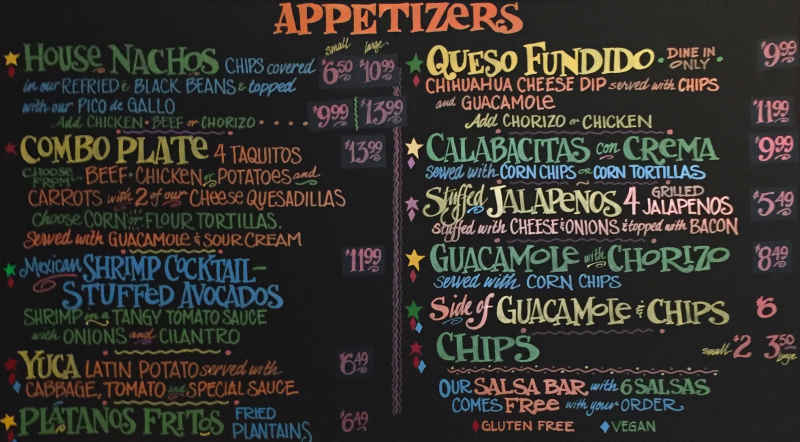 APPETIZERS
small large
HOUSE NACHOS CHIPS covered $6.50 $10.99
in our REFRIED & BLACK BEANS & topped
with our PICO de GALLO
Add CHICKEN • BEEF or CHORIZO • • • • $9.99 $13.99
COMBO PLATE 4 TAQUITOS $13.99
CHOOSE FROM BEEF • CHICKEN or POTATOES and
CARROTS with 2 of our CHEESE QUESADILLAS
CHOOSE CORN or FLOUR TORTILLAS.
Served with GUACAMOLE & SOUR CREAM
Mexican SHRIMP COCKTAIL- $11.99
STUFFED AVOCADOS
SHRIMP in a TANGY TOMATO SAUCE
with ONIONS and CILANTRO
YUCA LATIN POTATO served with $6.49
CABBAGE, TOMATO and SPECIAL SAUCE
PLÁTANOS FRITOS FRIED PLANTAINS $6.49
QUESO FUNDIDO • DINE IN ONLY • $9.99
CHIHUAHUA CHEESE DIP served with CHIPS
and GUACAMOLE
Add CHORIZO or CHICKEN $11.99
CALABACITAS con CREMA $9.99
served with CORN CHIPS or CORN TORTILLAS
Stuffed JALAPEÑOS 4 GRILLED JALAPEÑOS $5.49
stuffed with CHEESE & ONIONS & topped with BACON
GUACAMOLE with CHORIZO $8.49
served with CORN CHIPS
Side of GUACAMOLE & CHIPS $6
CHIPS small $2 3.50 large
OUR SALSA BAR with 6 SALSAS
COMES FREE with your ORDER
GLUTEN FREE VEGAN